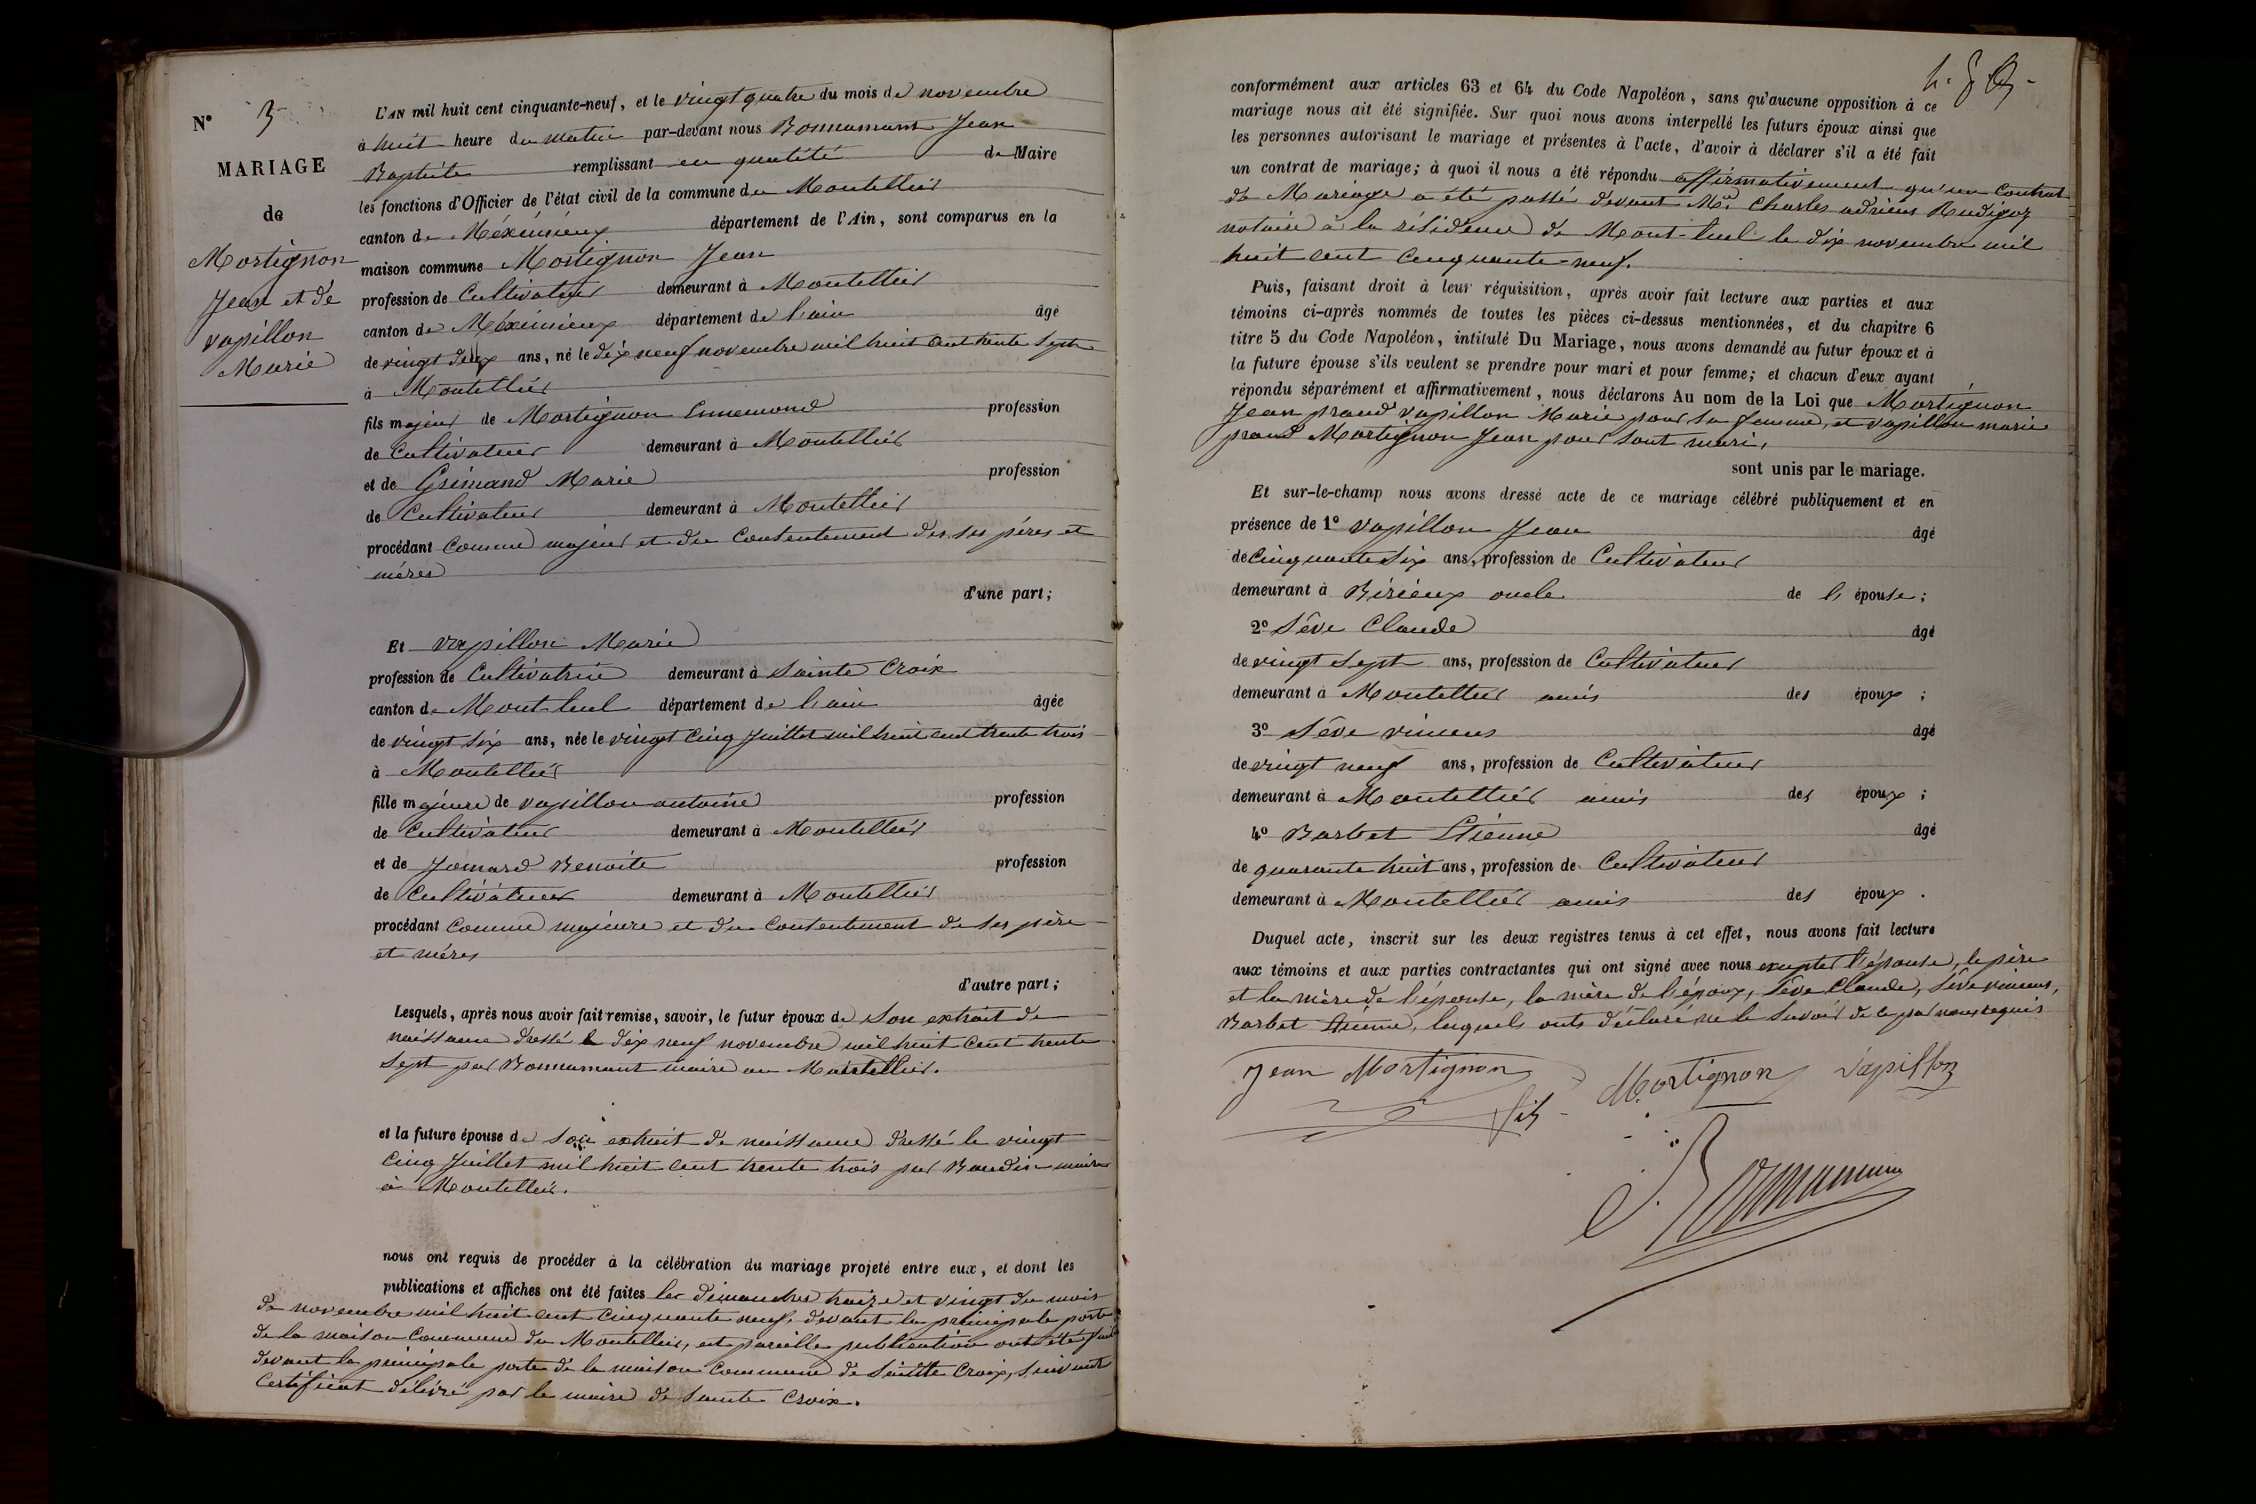 N° 3
MARIAGE
de
Mortignon
Jean et de
vapillon
Marie
L'AN mil huit cent cinquante-neuf, et le vingt quatre du mois de novembre
à huit heure du matin par-devant nous Bonnamant Jean
Baptiste remplissant en quatité de Maire
les fonctions d'Officier de l'état civil de la commune de Montellier
canton de Méximieux département de l'Ain, sont comparus en la
maison commune Mortignon Jean
profession de Cultivateur demeurant à Montellier
canton de Méximieux département de l'ain âgé
de vingt deux ans, né le dix neuf novembre mil huit cent trente sept
à Montellier
fils majeur de Mortignon Ennemond profession
de Cultivateur demeurant à Montellier
et de Grimand Marie profession
de Cultivateur demeurant à Montellier
procédant comme majeur et du consentement des ses pères et
mères
d'une part;
Et vapillon Marie
profession de Cultivatrice demeurant à Sainte Croix
canton de Mont-luel département de l'ain âgée
de vingt six ans, née le vingt cinq Juillet mil huit cent trente trois
à Montellier
fille majeure de vapillon antoine profession
de Cultivateur demeurant à Montellier
et de Jomard Benoite profession
de Cultivateur demeurant à Montellier
procédant comme majeure et du consentement de ses père
et mères
d'autre part;
Lesquels, après nous avoir fait remise, savoir, le futur époux de Son extrait de
naissance dressé le dix neuf novembre mil huit cent trente
sept par Bonnamant maire au Montellier.
et la future épouse de son extrait de naissance dressé le vingt
cinq Juillet mil huit cent trente trois par Baudin maire
à Montellier.
nous ont requis de procéder à la célébration du mariage projeté entre eux, et dont les
publications et affiches ont été faites les dimanches treize et vingt du mois
de novembre mil huit cent cinquante neuf, devant la principale porte
de la maison commune du Montellier, et pareille publication ont été fait
devant la principale porte de la maison commune de Sainte Croix, suivant
certificat délivré par le maire de Sainte Croix.
conformément aux articles 63 et 64 du Code Napoléon, sans qu'aucune opposition à ce
mariage nous ait été signifiée. Sur quoi nous avons interpellé les futurs époux ainsi que
les personnes autorisant le mariage et présentes à l'acte, d'avoir à déclarer s'il a été fait
un contrat de mariage; à quoi il nous a été répondu affirmativement qu'un contrat
de Mariage a été passé devant Me. Charles adrien Rudigoz
notaire à la résidence de Mont-luel le dix novembre mil
huit cent cinquante-neuf.
Puis, faisant droit à leur réquisition, après avoir fait lecture aux parties et aux
témoins ci-après nommés de toutes les pièces ci-dessus mentionnées, et du chapitre 6
titre 5 du Code Napoléon, intitulé Du Mariage, nous avons demandé au futur époux et à
la future épouse s'ils veulent se prendre pour mari et pour femme; et chacun d'eux ayant
répondu séparément et affirmativement, nous déclarons Au nom de la Loi que Mortignon
Jean prand vapillon Marie pour sa femme, et vapillon marie
prand Mortignon Jean pour sont mari,
sont unis par le mariage.
Et sur-le-champ nous avons dressé acte de ce mariage célébré publiquement et en
présence de 1° vapillon Jean âgé
de Cinquante Six ans, profession de Cultivateur
demeurant à Birieux oncle de l' épouse;
2° Sève Claude âgé
de vingt sept ans, profession de Cultivateur
demeurant à Montellier amis des époux;
3° Sève vincens âgé
de vingt neuf ans, profession de Cultivateur
demeurant à Montellier amis des époux;
4° Barbet Etienne âgé
de quarante huit ans, profession de Cultivateur
demeurant à Montellier amis des époux.
Duquel acte, inscrit sur les deux registres tenus à cet effet, nous avons fait lecture
aux témoins et aux parties contractantes qui ont signé avec nous excepter l'épouse, le père
et la mère de l'épouse, la mère de l'époux, Sève Claude, Sève vincens,
Barbet Etienne, lesquels onts déclaré ne le savoir de ce par nous requis
Jean Mortignon fils Mortignon Vapillon
Bonnamant